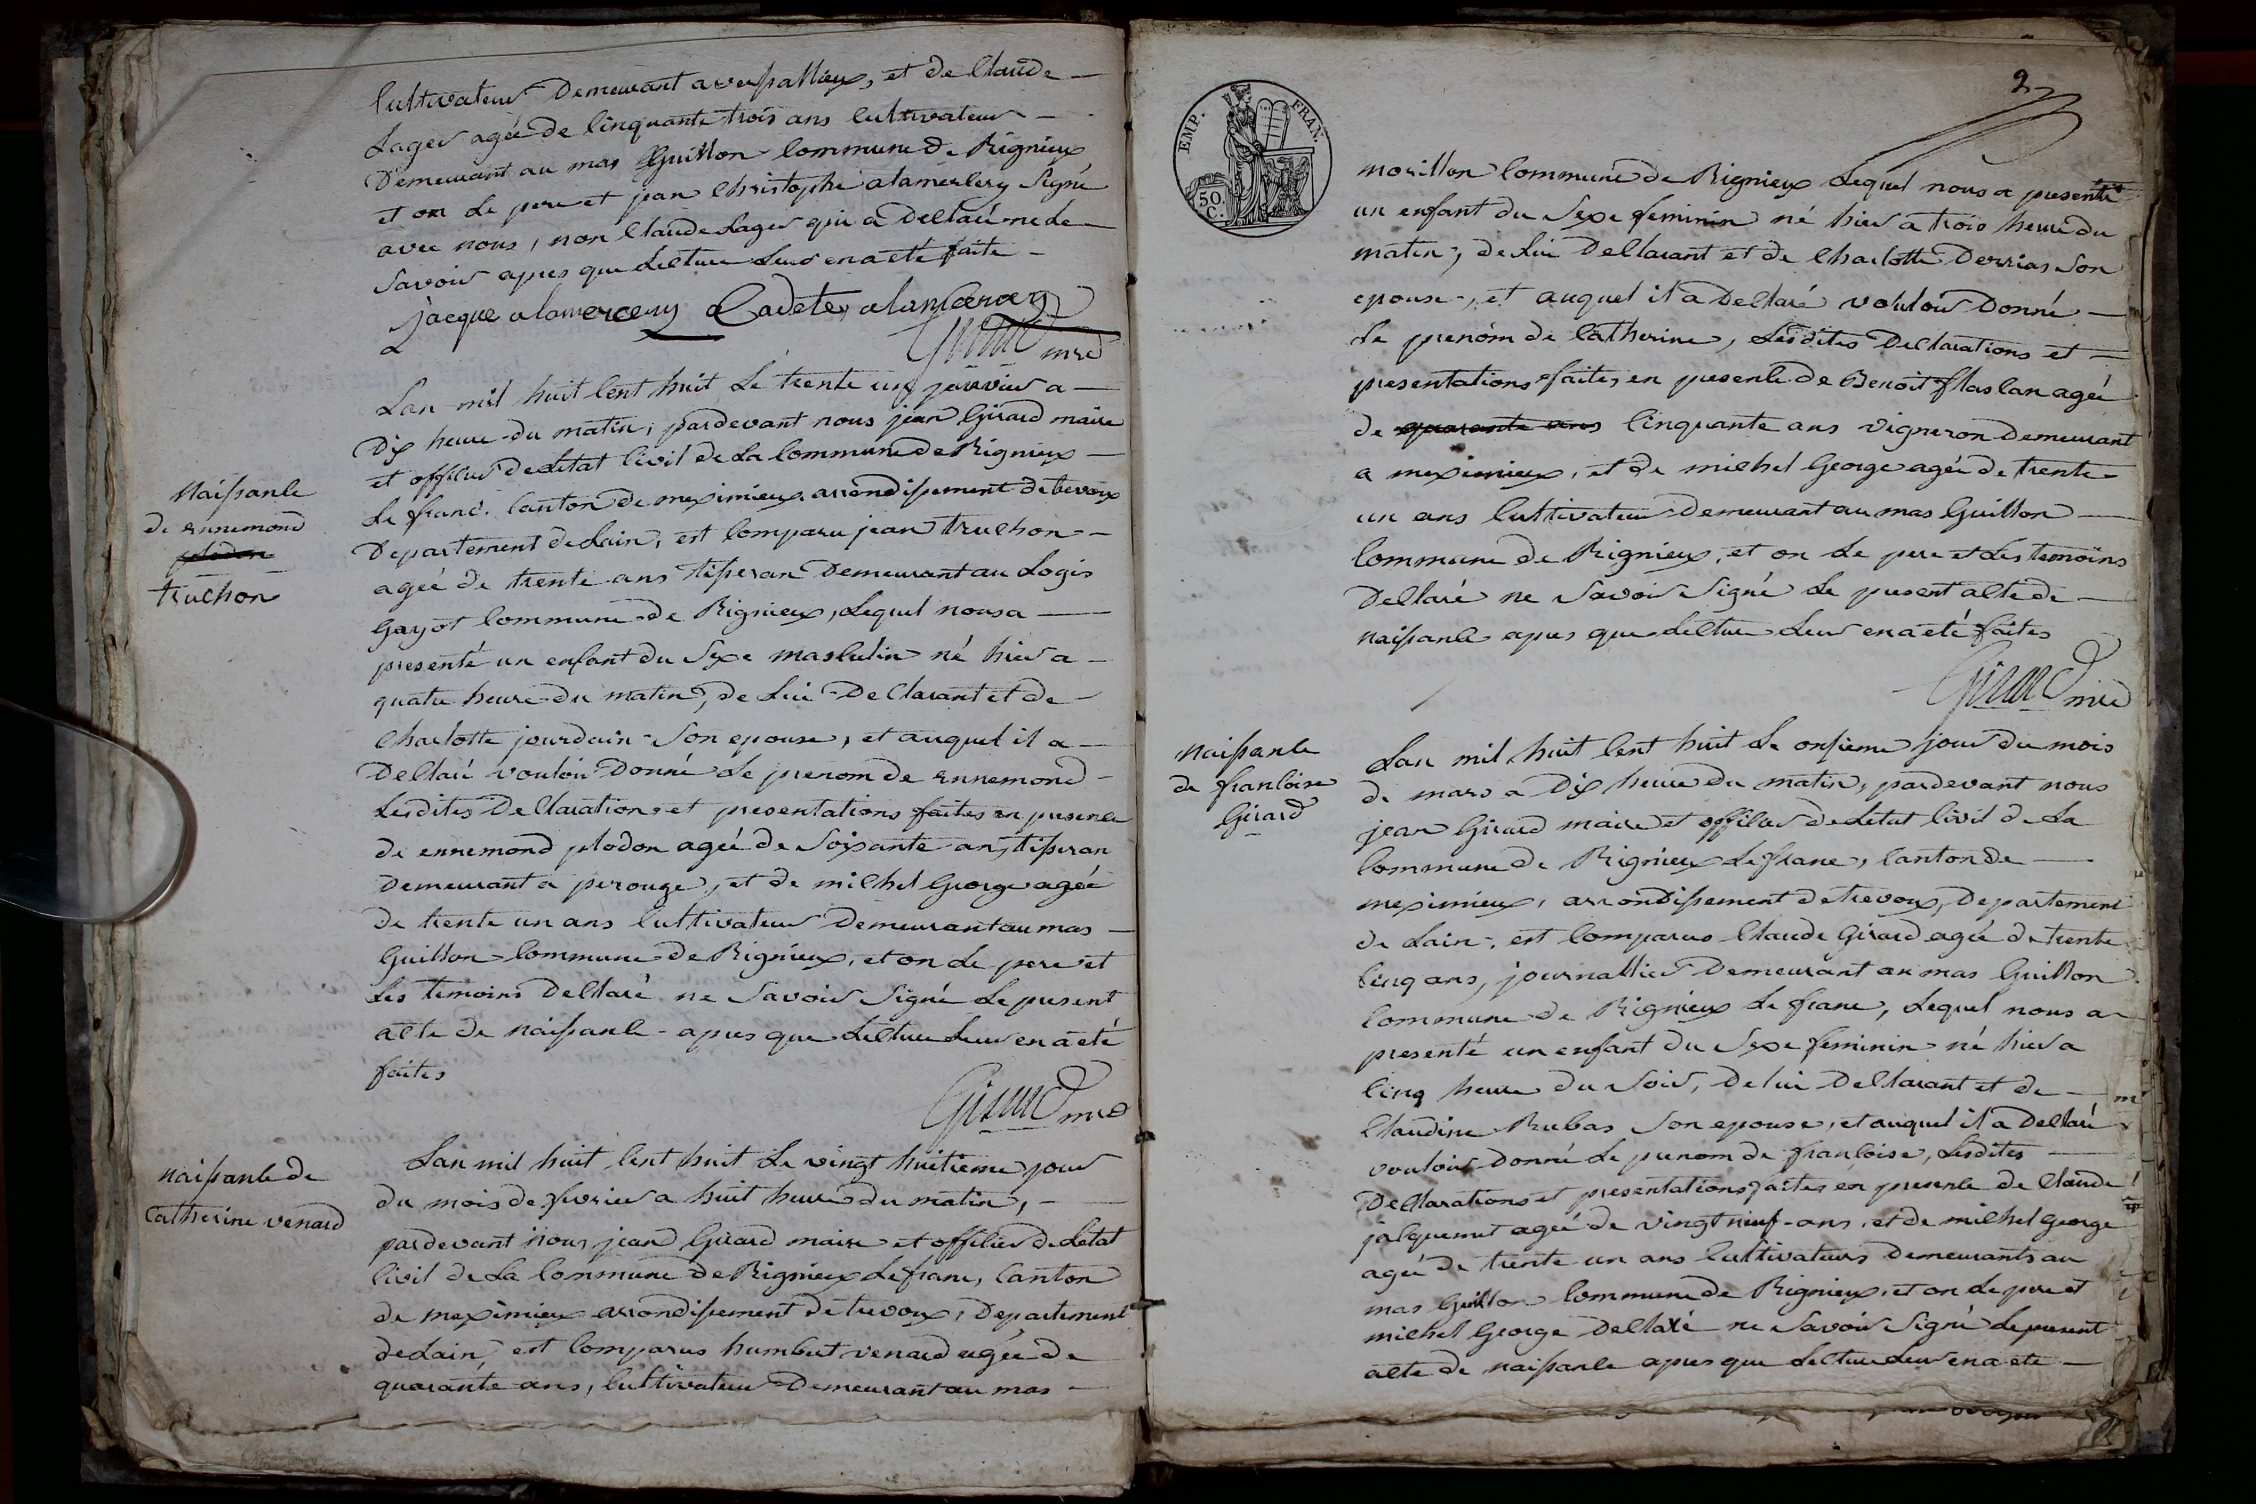 Cultivateur Demeurant a versallieux, et de Claude
Lager agée de Cinquante trois ans Cultivateur
Demeurant au mas Guillon Commune de Rignieux
et on le pere et jean Christophe alamerlery Signé
avec nous, non Claude Lager qui a Declaré ne le
Savoir apres que Lecture Leur en a eté faite
jacque alamercery Cadete, alamercery
Girard mre
Lan mil huit Cent huit Le trente un janvier a
Dix heure du matin, pardevant nous jean Girard maire
et officier de Letat Civil de La Commune de Rignieux
Le franc. Canton de meximieux arrondissement de trevoux
Departement de Lain, est Comparu jean truchon
ageé de trente ans tisseran Demeurant au Logis
Gayot Commune de Rignieux, Lequel nous a
presenté un enfant du Sexe masculin né hier a
quatre heure du matin, de Lui Declarant et de
Charlotte jourdain Son epouse, et auquel il a
Declaré vouloir Donné Le prenom de Ennemond
Lesdites Declarations et presentations faites en presence
de ennemond plodon ageé de Soixante ans, tisseran
Demeurant a perouge, et de michel George ageé
de trente un ans Cultivateur Demeurant au mas
Guillon Commune de Rignieux, et on Le pere et
Les temoins Declaré ne Savoir Signé Le present
acte de naissance apres que Lecture Leur en a eté
faites
Girard mre
Naissance
de Ennemond
plodon
truchon
Lan mil huit Cent huit Le vingt huitieme jour
du mois de fevrier a huit heure du matin,
pardevant nous jean Girard maire et officier de Letat
Civil de La Commune de Rignieux Le franc, Canton
de meximieux arrondissement de trevoux, Departement
de Lain, est Comparus humbert venard ageé de
quarante ans, Cultivateur Demeurant au mas
Naissance de
Catherine venard
2
EMP. FRAN.
50.
C.
morillon Commune de Rignieux Lequel nous a presenté
un enfant du Sexe feminin né hier a trois heure du
matin, de Lui Declarant et de Charlotte Derrias Son
epouse, et auquel il a Declaré vouloir Donné
Le prenom de Catherine, Lesdites Declarations et
presentations faites en presence de Benoit flaslan ageé
de quarante ans Cinquante ans vigneron Demeurant
a meximieux, et de michel George ageé de trente
un ans Cultivateur Demeurant au mas Guillon
Commune de Rignieux, et on Le pere et Les temoins
Declaré ne Savoir Signé Le present acte de
naissance apres que Lecture Leur en a eté faites
Girard mre
Naissance
de francoise
Girard
Lan mil huit Cent huit Le onsieme jour du mois
de mars a Dix heure du matin, pardevant nous
jean Girard maire et officier de Letat Civil de La
Commune de Rignieux Le franc, Canton de
meximieux, arrondissement de trevoux, Departement
de Lain, est Comparus Claude Girard ageé de trente
Cinq ans, journallier Demeurant au mas Guillon
Commune de Rignieux Le franc, Lequel nous a
presenté un enfant du Sexe feminin né hier a
Cinq heure du Soir, de lui Declarant et de
Claudine Rubas Son epouse, et auquel il a Declaré
vouloir Donné Le prenom de francoise, Lesdites
Declarations et presentations faites en presence de Claude
jacquemet ageé de vingt neuf ans, et de michel George
ageé de trente un ans Cultivateurs Demeurants au
mas Guillon Commune de Rignieux, et on Le pere et
michel George Declaré ne Savoir Signé Le present
acte de naissance apres que Lecture Leur en a ete